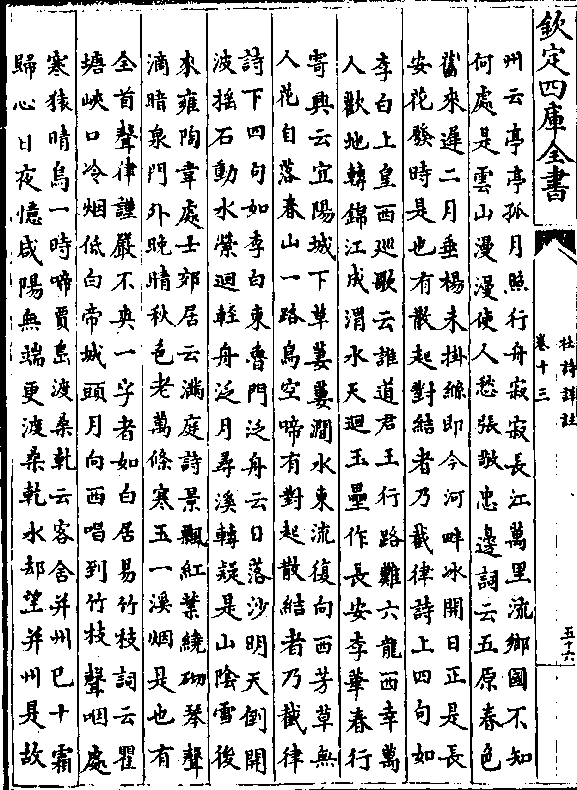 欽定四庫全書
杜詩詳註
卷十三
五十六
州云亭亭孤月照行舟寂寂長江萬里流鄉國不知
何處是雲山漫漫使人愁張敬忠邊詞云五原春色
舊來遲二月垂楊未掛絲即今河畔冰開日正是長
安花發時是也有散起對結者乃截律詩上四句如
李白上皇西廵歌云誰道君王行路難六龍西幸萬
人歡地轉錦江成渭水天迴玉壘作長安李華春行
寄興云宜陽城下草萋萋澗水東流復向西芳草無
人花自落春山一路鳥空啼有對起散結者乃截律
詩下四句如李白東魯門泛舟云日落沙明天倒開
波搖石動水縈迴輕舟泛月尋溪轉疑是山陰雪後
來雍陶韋處士郊居云滿庭詩景飄紅葉繞砌琴聲
滴暗泉門外晚晴秋色老萬條寒玉一溪烟是也有
全首聲律謹嚴不爽一字者如白居易竹枝詞云瞿
塘峽口冷烟低白帝城頭月向西唱到竹枝聲咽處
寒猿晴鳥一時啼賈島渡桑乾云客舍并州已十霜
歸心日夜憶咸陽無端更渡桑乾水却望并州是故